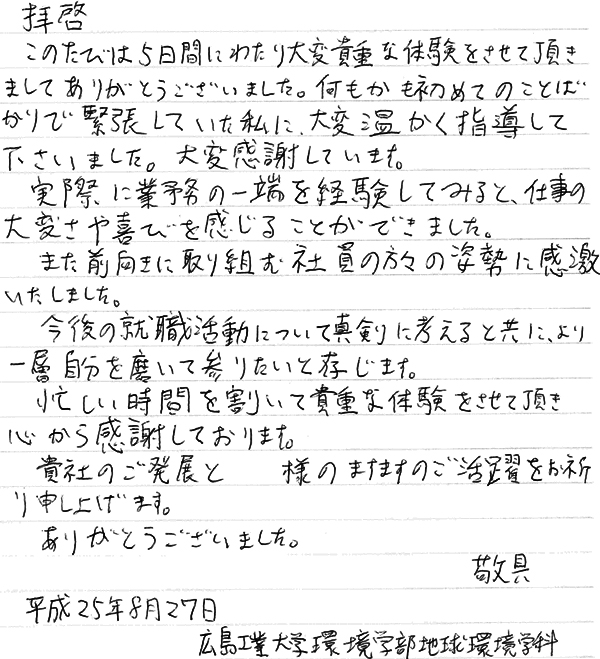 拝啓
このたびは5日間にわたり大変貴重な体験をさせて頂き
ましてありがとうございました。何もかも初めてのことば
かりで緊張していた私に、大変温かく指導して
下さいました。大変感謝しています。
実際に業務の一端を経験してみると、仕事の
大変さや喜びを感じることができました。
また前向きに取り組む社員の方々の姿勢に感激
いたしました。
今後の就職活動について真剣に考えると共に、より
一層自分を磨いて参りたいと存じます。
忙しい時間を割いて貴重な体験をさせて頂き
心から感謝しております。
貴社のご発展と 様のますますのご活躍をお祈
り申し上げます。
ありがとうございました。
敬具
平成25年8月27日
広島工業大学環境学部地球環境学科